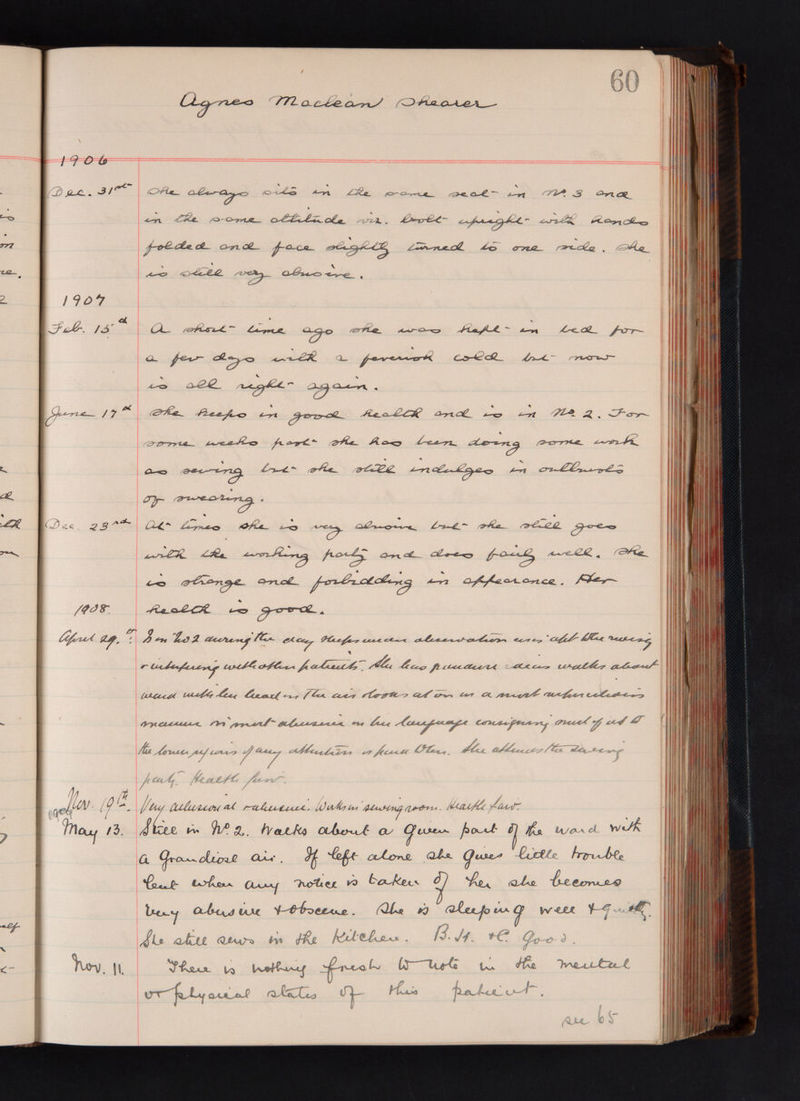 60
Agnes Maclean Shearer
1906
Dec. 31st She always sits in the same seat in No. 3 and
in the same attitude viz. bolt upright with hands
folded and face slightly turned to one side. She
is still very abusive.
1907
Feb. 15th A short time ago she was kept in bed for
a few days with a feverish cold but now
is all right again.
June 17th She keeps in good health and is in No. 2. For
some weeks past she has been doing some work
as sewing but she still indulges in outbursts
of swearing.
Dec. 23rd At times she is very abusive but she still goes
with the working party and does fairly well. She
is strange and forbidding in appearance. Her
1908. health is good.
April 29. Is in No 2 during the day sleeps under observation
interfering with other patients. She has
ward with her head in the air looks at on in a most
manner is most abusive in her language consigning most of us to
the lower regions if any attention is paid to her. She attends the sewing
party. Health fair.
Nov. 19th. Very abusive at. Works in sewing room. Health fair.
1909
May 13. Still in No. 2. Walks about a given part of the ward with
a grandiose air. If left alone she gives little trouble
but when any notice is taken of her she becomes
very abusive & obscene. She is sleeping well &
She still sews in the Kitchen. B.H. & C. good.
Nov. 11. There is nothing fresh to note in the mental
or physical states of this patient.
see 65